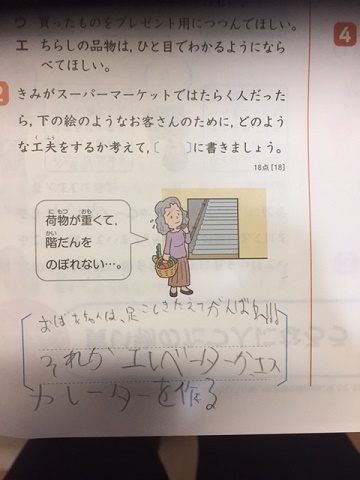 ウ 買ったものをプレゼント用につつんでほしい。
エ ちらしの品物は,ひと目でわかるようになら
べてほしい。
4
2 きみがスーパーマーケットではたらく人だった
ら,下の絵のようなお客さんのために,どのよう
な工夫をするか考えて,[ ]に書きましょう。
くふう
18点[18]
にもつ おも
荷物が重くて,
かい
階だんを
のぼれない…。
おばあちゃんは、足こしきたえてがんばれ!!!
それかエレベーターかエス
カレーターを作る